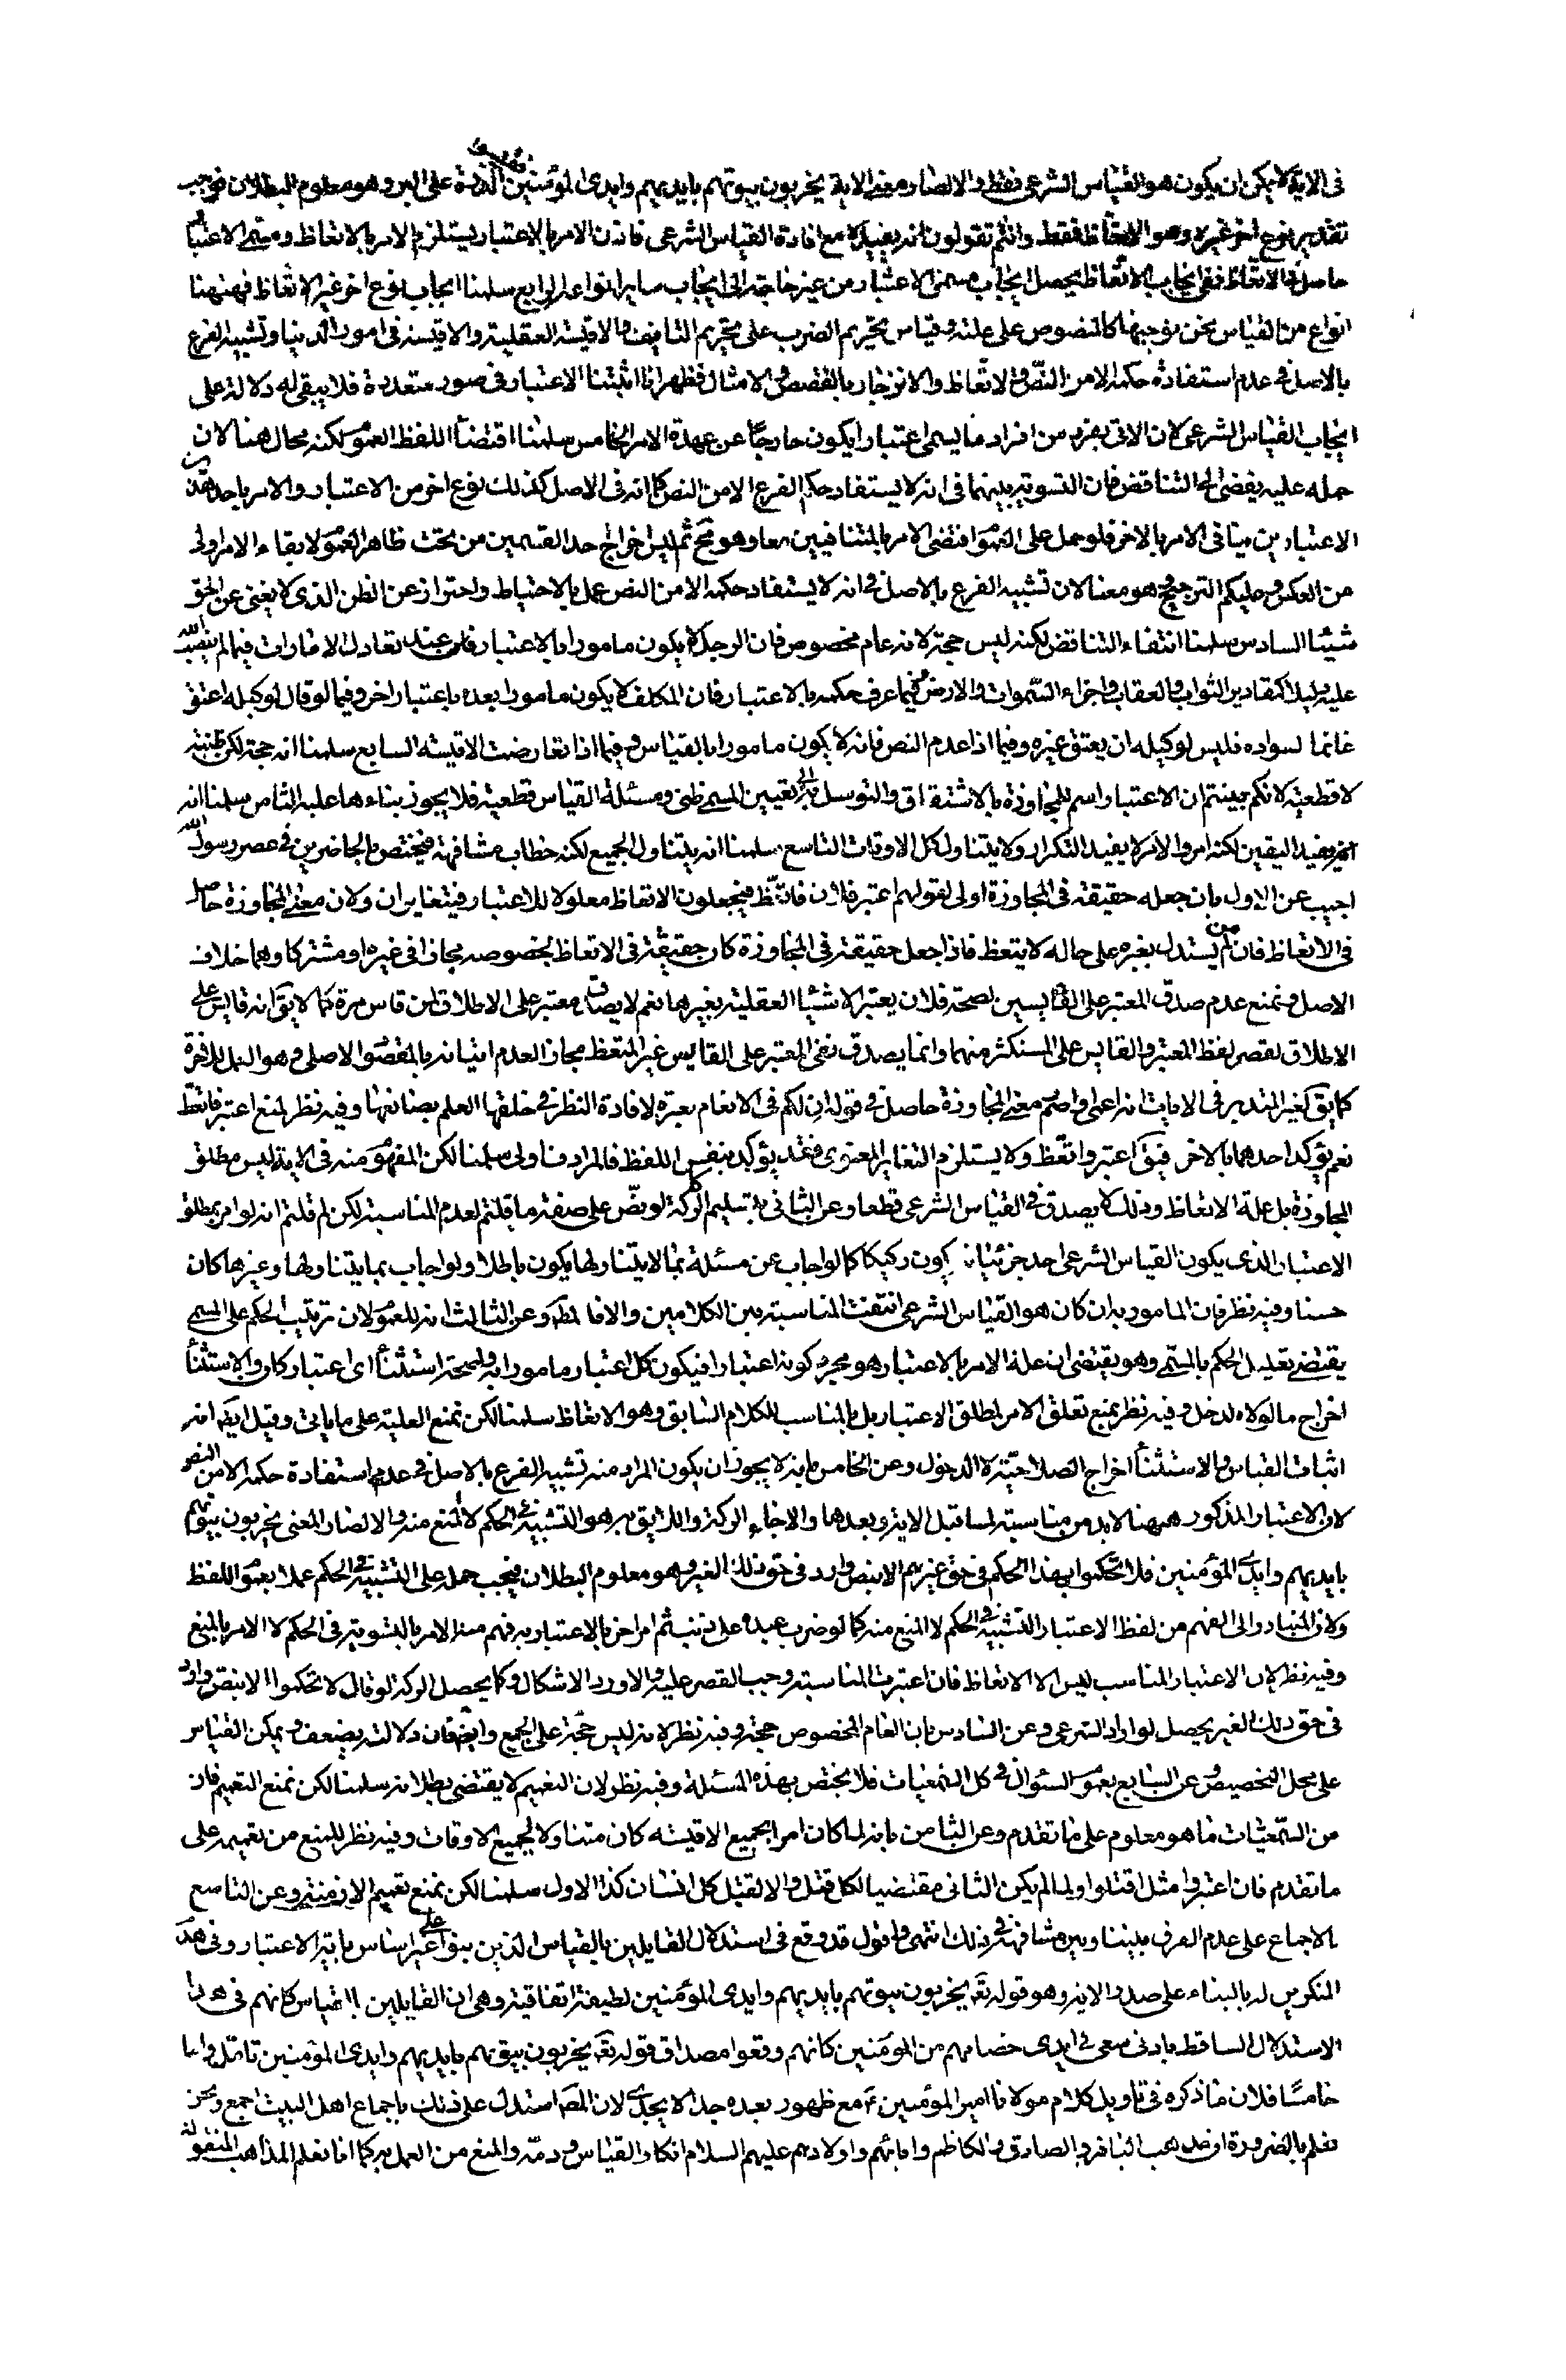 فى الاية لا يمكن ان يكون هو القياس الشرعى فقط والا لصار معنى الاية يخربون بيوتهم بايديهم وايدى المؤمنين الذرة على البر وهو معلوم البطلان فوجب
تقدير نوع اخر غيره وهو الاتعاظ فقط وانتم تقولون انه يفيده مع افادة القياس الشرعى فاذن الامر بالاعتبار يستلزم الامر بالاتعاظ ومسمى الاعتبار
حاصل فى الاتعاظ ففى ايجاب الاتعاظ يحصل ايجاب مسمى الاعتبار من غير حاجة الى ايجاب ساير انواعه الرابع سلمنا ايجاب نوع اخر غير الاتعاظ فههنا
انواع من القياس نحن نوجبها كالمنصوص على علته وقياس تحريم الضرب على تحريم التافيف والاقيسة العقلية والاقيسة فى امور الدنيا وتشبيه الفرع
بالاصل فى عدم استفادة حكمه الا من النص والاتعاظ والانزجار بالقصص والامثال فظهر انا اثبتنا الاعتبار فى صور متعددة فلا يبقى له دلالة على
ايجاب القياس الشرعى لان الاتى بفرد من افراد ما يسمى اعتبارا يكون خارجا عن عهدة الامر الخامس سلمنا اقتضاء اللفظ العموم لكنه محال هنا لان
حمله عليه يفضى الى التناقض فان التسوية بينهما فى انه لا يستفاد حكم الفرع الا من النص كما انه فى الاصل كذلك نوع اخر من الاعتبار والامر باحد هذين
الاعتبارين ينافى الامر بالاخر فلو حمل على العموم اقتضى الامر بالمتنافيين معا وهو مح ثم ليس اخراج احد القسمين من تحت ظاهر العموم لابقاء الامر اولى
من العكس وعليكم الترجيح وهو معنا لان تشبيه الفرع بالاصل فى انه لا يستفاد حكمه الا من النص عمل بالاحتياط واحتراز عن الظن الذى لا يغنى عن الحق
شيئا السادس سلمنا انتفاء التناقض لكنه ليس حجة لانه عام مخصوص فان الرجل لا يكون مامورا بالاعتبار عند تعادل الامارات فيما لم ينصب الله
عليه دليلا كمقادير الثواب والعقاب واجزاء السموات والارض وفيما عرف حكمه بالاعتبار فان المكلف لا يكون مامورا بعده باعتبار اخر وفيما لو قال لوكيله اعتق
غانما لسواده فليس لوكيله ان يعتق غيره وفيما اذا عدم النص فانه لا يكون مامورا بالقياس وفيما اذا تعارضت الاقيسة السابع سلمنا انه حجة لكن ظنية
لا قطعية لانكم بينتم ان الاعتبار اسم للمجاوزة بالاشتقاق والتوسل به الى تعيين المسمى ظنى ومسئلة القياس قطعية فلا يجوز بناءها عليه الثامن سلمنا انه
امر يفيد اليقين لكنه امر والامر لا يفيد التكرار ولا يتناول كل الاوقات التاسع سلمنا انه يتناول الجميع لكنه خطاب مشافهة فيختص بالحاضرين فى عصر رسول الله
اجيب عن الاول بان جعله حقيقة فى المجاوزة اولى لقولهم اعتبر فلان فاتعظ فيجعلون الاتعاظ معلولا للاعتبار فيتغايران ولان معنى المجاوزة حاصل
فى الاتعاظ فان من لم يستدل بغيره على حاله لا يتعظ فاذا جعل حقيقة فى المجاوزة كان حقيقة فى الاتعاظ بخصوصه مجازا فى غيره او مشتركا وهما خلاف
الاصل ونمنع عدم صدق المعتبر على القايسين لصحة فلان يعتبر الاشياء العقلية بغيرها نعم لا يصدق معتبر على الاطلاق لمن قاس مرة كما لا يق انه قايس على
الاطلاق لقصر لفظ المعتبر والقايس على المستكثر منهما وانما يصدق نفى المعتبر على القايس غير المتعظ مجازا لعدم اتيانه بالمقصود الاصلى وهو العمل للاخرة
كما يق لغير المتدبر فى الايات انه اعمى واصم معنى المجاوزة حاصل فى قوله ان لكم فى الانعام لعبرة لافادة النظر فى خلقها العلم بصانعها وفيه نظر لمنع اعتبر فاتعظ
نعم يؤكد احدهما بالاخر فيق اعتبر واتعظ ولا يستلزم التغاير المعنوى فقد يؤكد بنفس اللفظ فالمرادف اولى سلمنا لكن المفهوم منه فى الاية ليس مطلق
المجاوزة بل علة الاتعاظ وذلك لا يصدق فى القياس الشرعى قطعا وعن الثانى بتسليم الركة لو نص على صفة ما قلتم لعدم المناسبة لكن لم قلتم انه لو امر بمطلق
الاعتبار الذى يكون القياس الشرعى احد جزئياته يكون ركيكا كما لو اجاب عن مسئلة بما لا يتناولها يكون باطلا ولو اجاب بما يتناولها وغيرها كان
حسنا وفيه نظر فان المامور به ان كان هو القياس الشرعى انتفت المناسبة بين الكلامين والا فالمط وعن الثالث انه للعموم لان ترتيب الحكم على المسمى
يقتضى تعليل الحكم بالمسمى وهو يقتضى ان علة الامر بالاعتبار هو مجرد كونه اعتبارا فيكون كل اعتبار مامورا به ولصحة استثناء اى اعتبار كان والاستثناء
اخراج ما لولاه لدخل وفيه نظر بمنع تعلق الامر بمطلق الاعتبار بل بالمناسب للكلام السابق وهو الاتعاظ سلمنا لكن نمنع العلية على ما ياتى وقيل ايضا انه
اثبات القياس بالقياس والاستثناء اخراج الصلاحية لا الدخول وعن الخامس بانه لا يجوز ان يكون المراد منه تشبيه الفرع بالاصل فى عدم استفادة حكمه الا من النص
لان الاعتبار المذكور ههنا لا بد من مناسبته لما قبل الاية وبعدها والا جاء الركة واللايق به هو التشبيه فى الحكم لا المنع منه والا لصار المعنى يخربون بيوتهم
بايديهم وايدى المؤمنين فلا تحكموا بهذا الحكم فى حق غيرهم الا بنص وارد فى حق ذلك الغير وهو معلوم البطلان فيجب حمله على التشبيه فى الحكم عملا بعموم اللفظ
ولان المتبادر الى الفهم من لفظ الاعتبار التشبيه فى الحكم لا المنع منه كما لو ضرب عبده على ذنب ثم امر اخر بالاعتبار به فهم منه الامر بالتسوية فى الحكم لا الامر بالمنع
وفيه نظر لان الاعتبار المناسب ليس الا الاتعاظ فان اعتبرت المناسبة وجب القصر عليه والا ورد الاشكال وكما يحصل الركة لو قال لا تحكموا الا بنص وارد
فى حق ذلك الغير يحصل لو اراد الشرعى وعن السادس بان العام المخصوص حجة وفيه نظر لانه ليس حجة على الجميع وايض فان دلالته يضعف ويمكن القياس
على محل التخصيص وعن السابع بعموم السئوال فى كل السمعيات فلا يختص بهذه المسئلة وفيه نظر لان التعميم لا يقتضى بطلانه سلمنا لكن نمنع التعميم فان
من السمعيات ما هو معلوم على ما تقدم وعن الثامن بانه لما كان امرا بجميع الاقيسة كان متناولا لجميع الاوقات وفيه نظر للمنع من تعميمه على
ما تقدم فان اعتبروا مثل اقتلوا ولما لم يكن الثانى مقتضيا لكل قتل والا لقتل كل انسان كذا الاول سلمنا لكن نمنع تعميم الازمنة وعن التاسع
بالاجماع على عدم الفرق بيننا وبين مشافهى ذلك انتهى واقول قد وقع فى استدلال القايلين بالقياس الذين بنوا على غير اساس باية الاعتبار وفى هدم
المنكرين له بالبناء على صدر الاية وهو قوله تع يخربون بيوتهم بايديهم وايدى المؤمنين لطيفة اتفاقية وهى ان القايلين بالقياس كانهم فى هذا
الاستدلال الساقط بادنى سعى فى ايدى خصامهم من المؤمنين كانهم وقعوا مصداق قوله تع يخربون بيوتهم بايديهم وايدى المؤمنين تامل واما
خامسا فلان ما ذكره فى تاويل كلام مولانا امير المؤمنين ع مع ظهور بعده جدا لا يجدى لان المص استدل على ذلك باجماع اهل البيت اجمع ونحن
نعلم بالضرورة ان مذهب الباقر والصادق والكاظم وابائهم واولادهم عليهم السلام انكار القياس وذمه والمنع من العمل به كما انا نعلم المذاهب المنقولة